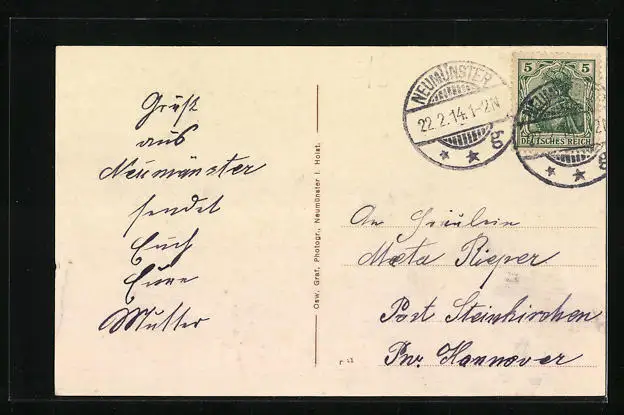 Gruß
aus
Neumünster
sendet
Euch
Eure
Mutter
Osw. Graf, Photogr., Neumünster i. Holst.
NEUMÜNSTER
22.2.14.1-2N
5 5
DEUTSCHES REICH
An Fräulein
Meta Rieper
Post Steinkirchen
Prv. Hannover